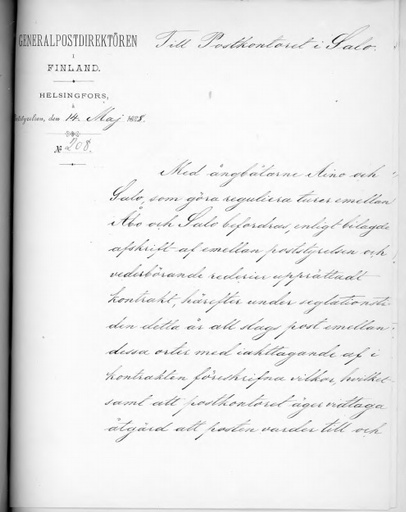 GENERALPOSTDIREKTÖREN
i
FINLAND.
HELSINGFORS,
å
Poststyrelsen, den 14 Maj 1888.
№ 208.
Till Postkontoret i Salo.
Med ångbåtarne Aino och
Salo, som göra reguliera turer emellan
Åbo och Salo befordras, enligt bilagde
afskrift af emellan poststyrelsen och
vederbörande rederier upprättadt
kontrakt, härefter under seglationsti-
den detta år all slags post emellan
dessa orter med iakttagande af i
kontrakten föreskrifna vilkor, hvilket
samt att postkontoret äger vidtaga
åtgärd att posten varder till och